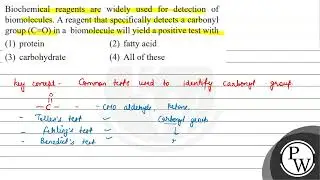 Biochemical reagents are widely used for detection of
biomolecules. A reagent that specifically detects a carbonyl
group (C=O) in a biomolecule will yield a positive test with
(1) protein (2) fatty acid
(3) carbohydrate (4) All of these
Key concept - Common tests used to identify carbonyl group
O
-C- CHO aldehyde, Ketone
- Tollen's test Carbonyl group
- Fehling's test
- Benedict's test
P
W